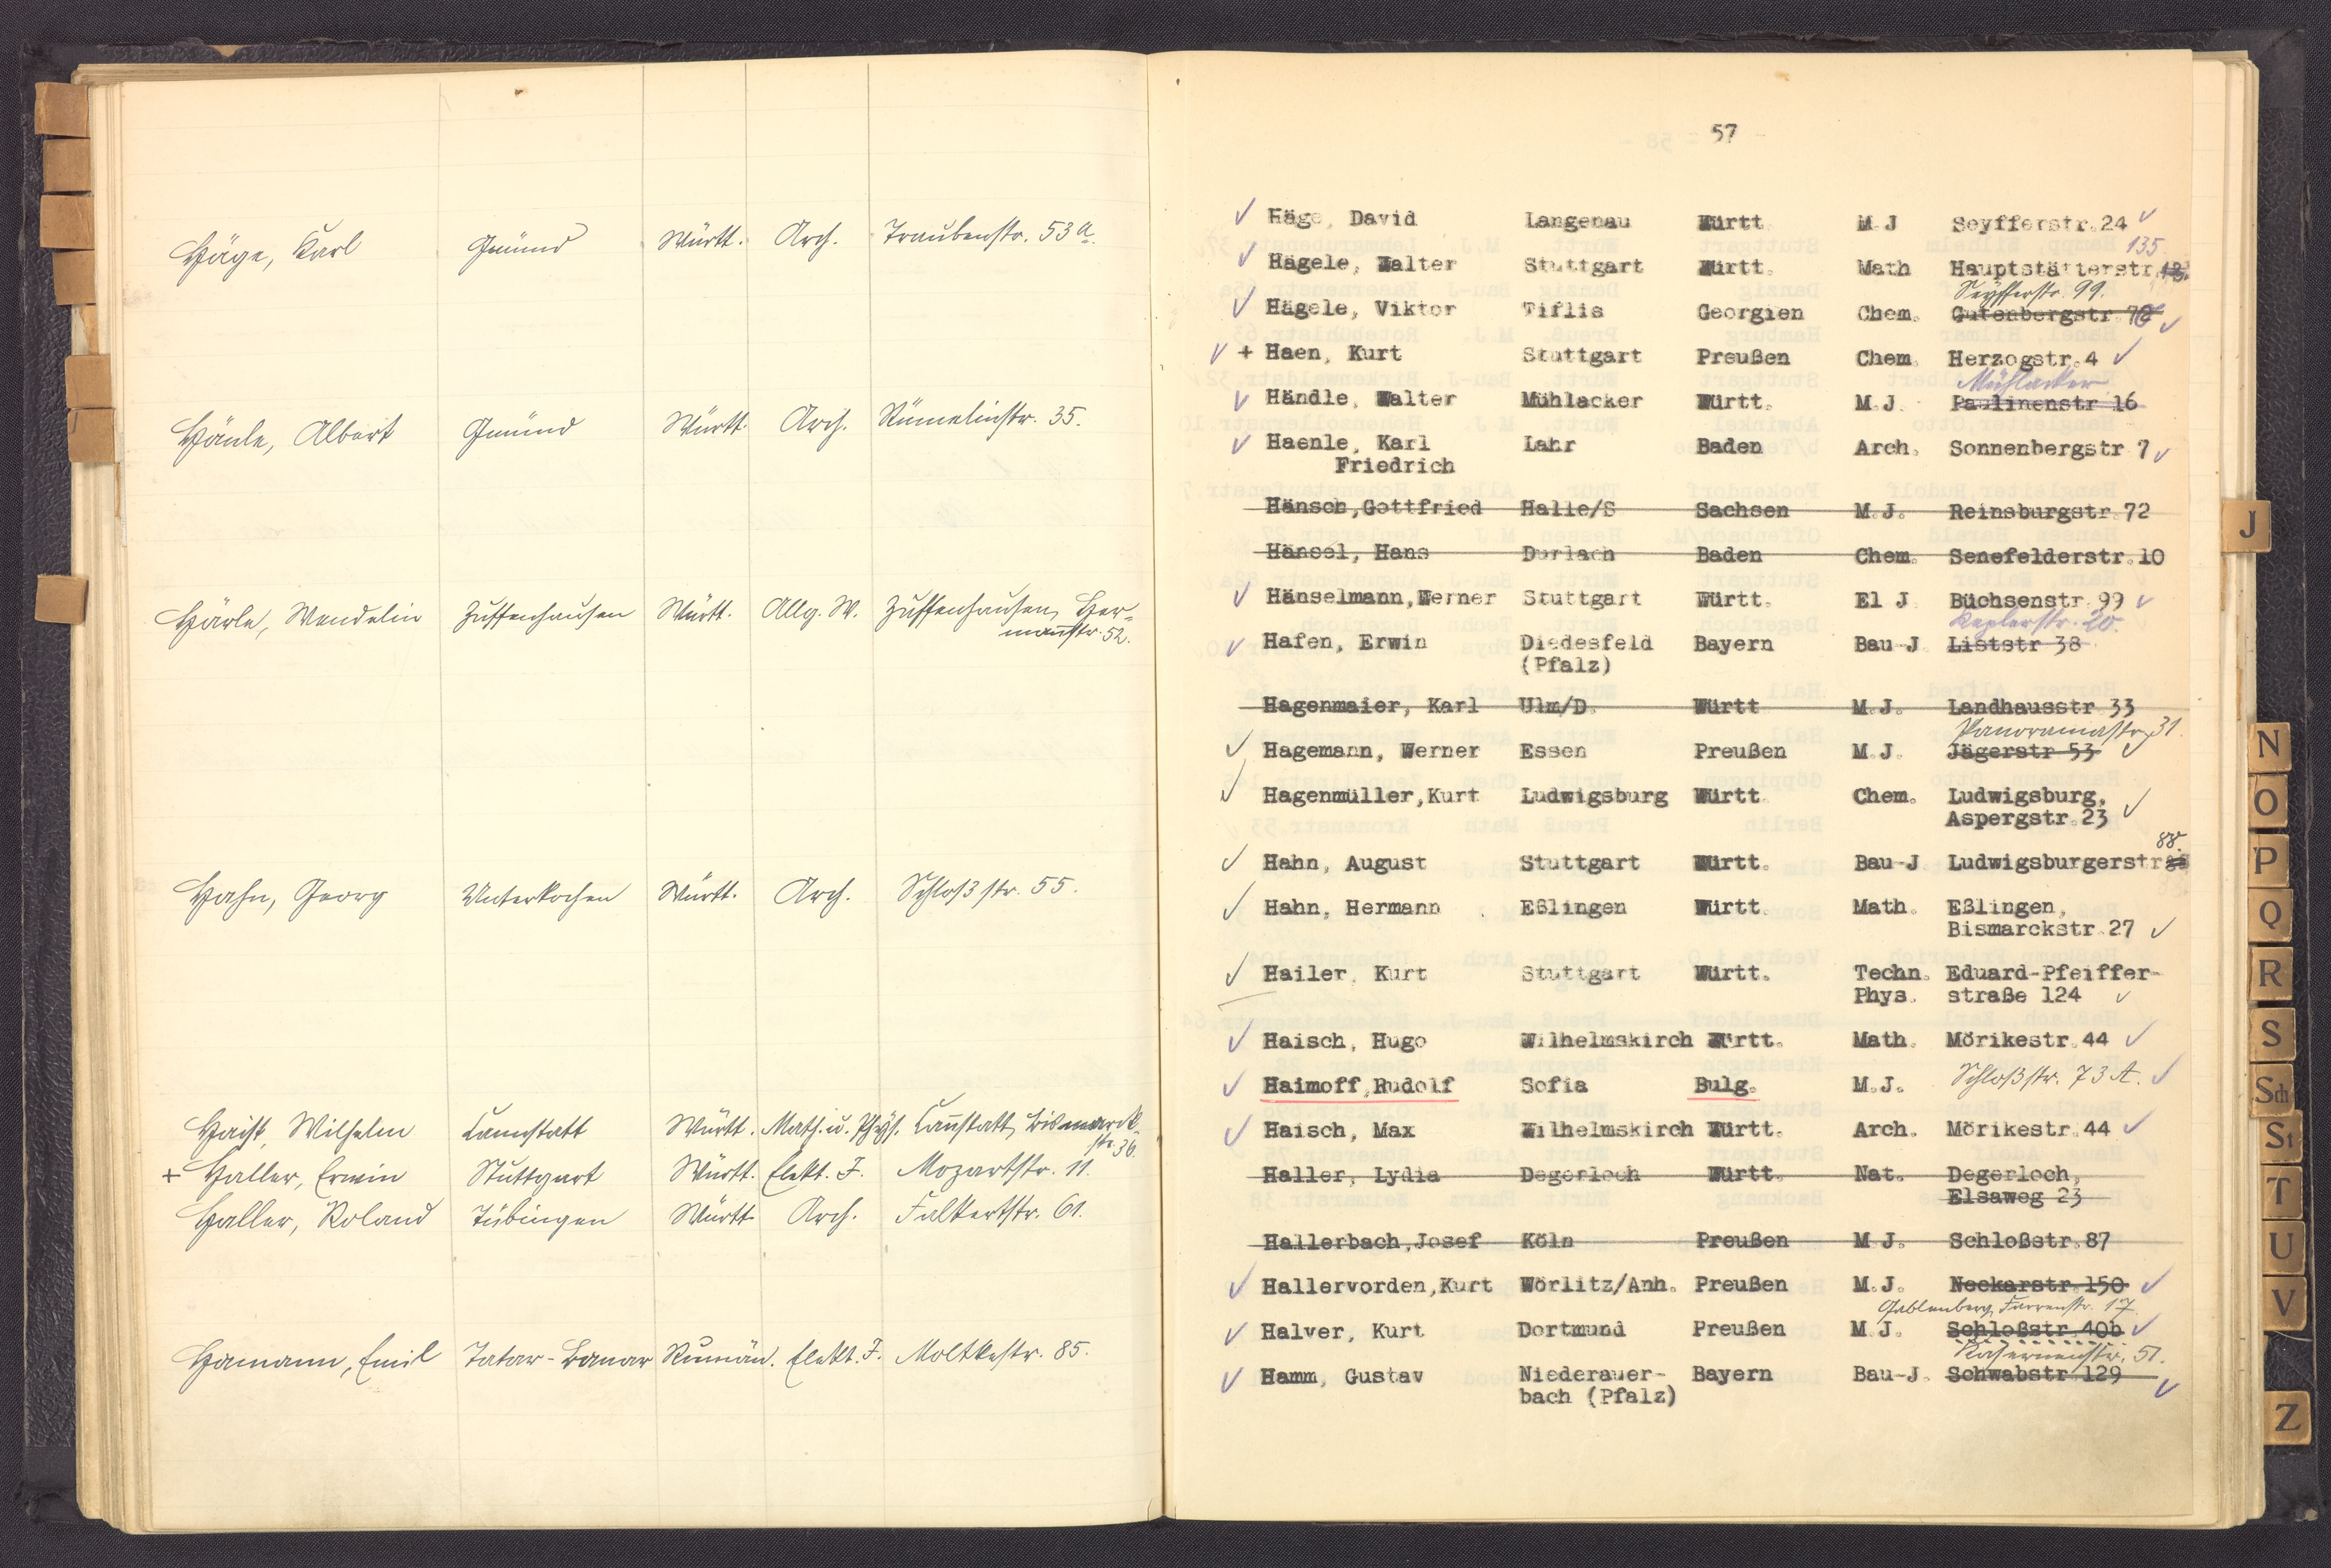 Häge, Karl Gmünd Württ. Arch. Traubenstr. 53 a.
Hänle, Albert Gmünd Württ. Arch. Rümelinstr. 35.
Härle, Wendelin Zuffenhausen Württ. Allg. W. Zuffenhausen, Her-
mannstr. 52.
Hahn, Georg Unterkochen Württ. Arch. Schloßstr. 55.
Haist, Wilhelm Cannstatt Württ. Math. u. Phys. Cannstatt, Bismarck-
str. 36.
+ Haller, Erwin Stuttgart Württ. Elekt. J. Mozartstr. 11.
Haller, Roland Tübingen Württ. Arch. Falkertstr. 61.
Hamann, Emil Tatar-Bunar Rumän. Elekt. J. Moltkestr. 85.
57
✓ Häge, David Langenau Württ. M.J. Seyfferstr. 24 ✓
135.
✓ Hägele, Walter Stuttgart Württ. Math. Hauptstätterstr.
Seyfferstr. 99.
✓ Hägele, Viktor Tiflis Georgien Chem. Gutenbergstr. ✓
✓ + Haen, Kurt Stuttgart Preußen Chem. Herzogstr. 4 ✓
Mühlacker
✓ Händle, Walter Mühlacker Württ. M.J. Paulinenstr. 16
✓ Haenle, Karl Lahr Baden Arch. Sonnenbergstr 7 ✓
Friedrich
Hänsch, Gottfried Halle/S Sachsen M.J. Reinsburgstr. 72
Hänsel, Hans Durlach Baden Chem. Senefelderstr. 10
✓ Hänselmann, Werner Stuttgart Württ. El J Büchsenstr. 99 ✓
Keplerstr. 20.
✓ Hafen, Erwin Diedesfeld Bayern Bau-J Liststr 38
(Pfalz)
Hagenmaier, Karl Ulm/D. Württ M.J. Landhausstr. 33
Panoramastr. 31.
✓ Hagemann, Werner Essen Preußen M.J. Jägerstr 53 ✓
✓ Hagenmüller, Kurt Ludwigsburg Württ. Chem. Ludwigsburg,
Aspergstr. 23 ✓
88.
✓ Hahn, August Stuttgart Württ. Bau-J Ludwigsburgerstr
✓ Hahn, Hermann Eßlingen Württ. Math. Eßlingen,
Bismarckstr. 27 ✓
✓ Hailer, Kurt Stuttgart Württ. Techn. Eduard-Pfeiffer-
Phys. straße 124 ✓
✓ Haisch, Hugo Wilhelmskirch Württ. Math. Mörikestr. 44 ✓
✓ Haimoff, Rudolf Sofia Bulg. M.J. Schloßstr. 73 A. ✓
✓ Haisch, Max Wilhelmskirch Württ. Arch. Mörikestr. 44 ✓
Haller, Lydia Degerloch Württ. Nat. Degerloch,
Elsaweg 23
Hallerbach, Josef Köln Preußen M.J. Schloßstr. 87
✓ Hallervorden, Kurt Wörlitz/Anh. Preußen M.J. Neckarstr. 150 ✓
Gablenberg, Farrenstr. 17.
✓ Halver, Kurt Dortmund Preußen M.J. Schloßstr. 40b ✓
Kasernenstr. 51.
✓ Hamm, Gustav Niederauer- Bayern Bau-J. Schwabstr 129 ✓
bach (Pfalz)
J
N
O
P
Q
R
S
Sch
St
T
U
V
Z